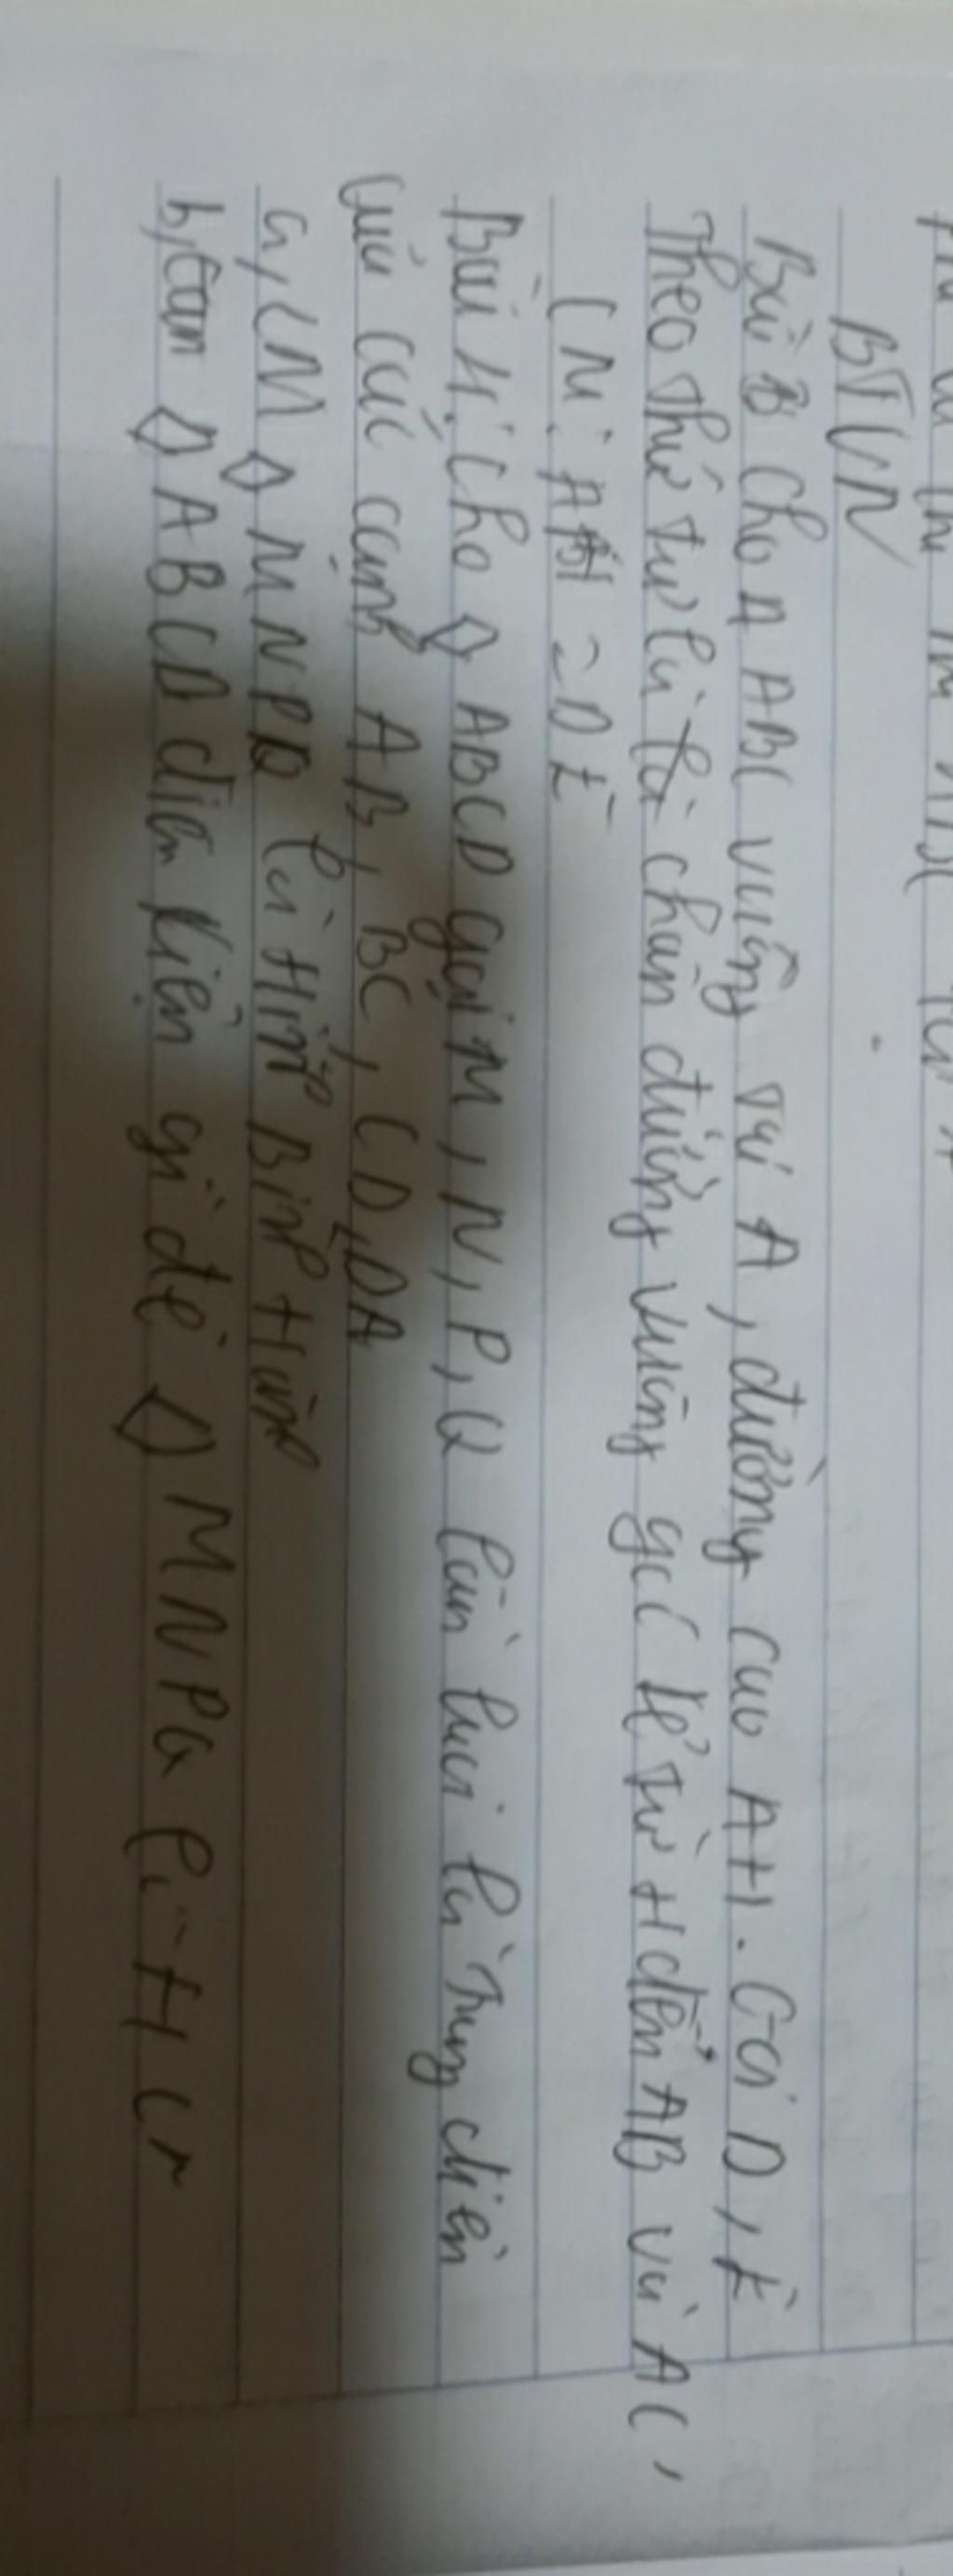 BTVN
Bài 3 Cho △ ABC vuông tại A, đường cao AH. Gọi D, E
Theo thứ tự là là chân đường vuông góc kẻ từ H đến AB và AC,
CM: AH = DE
Bài 4: Cho ◇ ABCD gọi M, N, P, Q lần lượt là trung điểm
của các cạnh AB, BC, CD, DA
a, CM ◇ MNPQ là Hình Bình Hành
b, Cần ◇ ABCD điều kiện gì để ◇ MNPQ là HCN